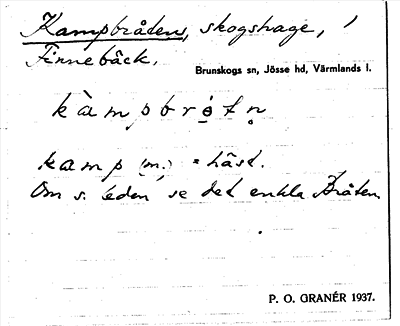 Kampbråten, skogshage, 1
Finnebäck.
Brunskogs sn, Jösse hd, Värmlands l.
kàmpbrǫ́tn̥
kamp (m.) = häst.
Om s. leden se det enkla Bråten.
P. O. GRANÉR 1937.